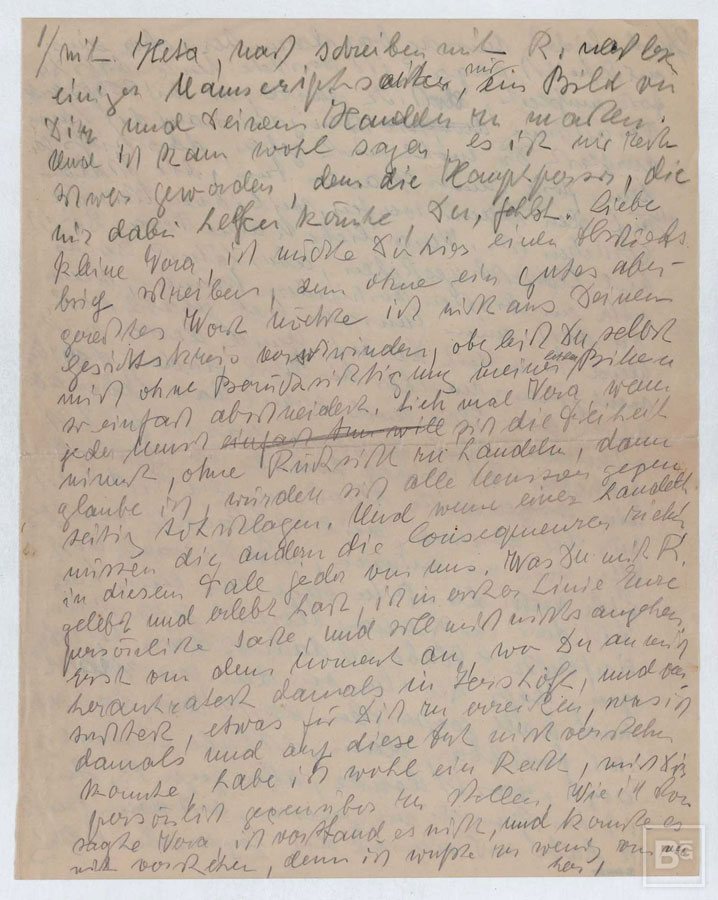 1/ mit Heta, nach schreiben mit R. nach
einiger Manuscripte, mir ein Bild von
Dir und Deinem Handeln zu machen.
Und ich kann wohl sagen, es ist mir recht
schwer geworden, denn die Hauptperson, die
mir dabei helfen könnte, Du, fehlst. Liebe
kleine Vera, ich möchte Dir dies einen Abschieds
brief schreiben, denn ohne ein gutes aber
gerechtes Wort möchte ich nicht aus Deinem
Gesichtskreis verschwinden, obgleich Du selbst
mich ohne Berücksichtigung meiner Bitten
so einfach abschneidest. Sieh mal Vera, wenn
jeder Mensch einfach tun will sich die Freiheit
nimmt, ohne Rücksicht zu handeln, dann
glaube ich, würden sich alle Menschen gegen
seitig totschlagen. Und wenn einer handelt
müssen die andern die Consequenzen ziehen,
in diesem Falle jeder von uns. Was Du mit R.
gelebt und erlebt hast, ist in erster Linie Eure
persönliche Sache, und soll mich nichts angehen,
erst von dem Moment an, wo Du an mich
herantratest damals in, und
suchtest, etwas für Dich zu erreichen, was ich
damals und auf diese Art nicht verstehen
konnte, habe ich wohl ein Recht, mich Dir
persönlich gegenüber zu stellen. Wie ich
sagte Vera, ich verstand es nicht, und konnte es
nicht verstehen, denn ich wußte zu wenig von
BG